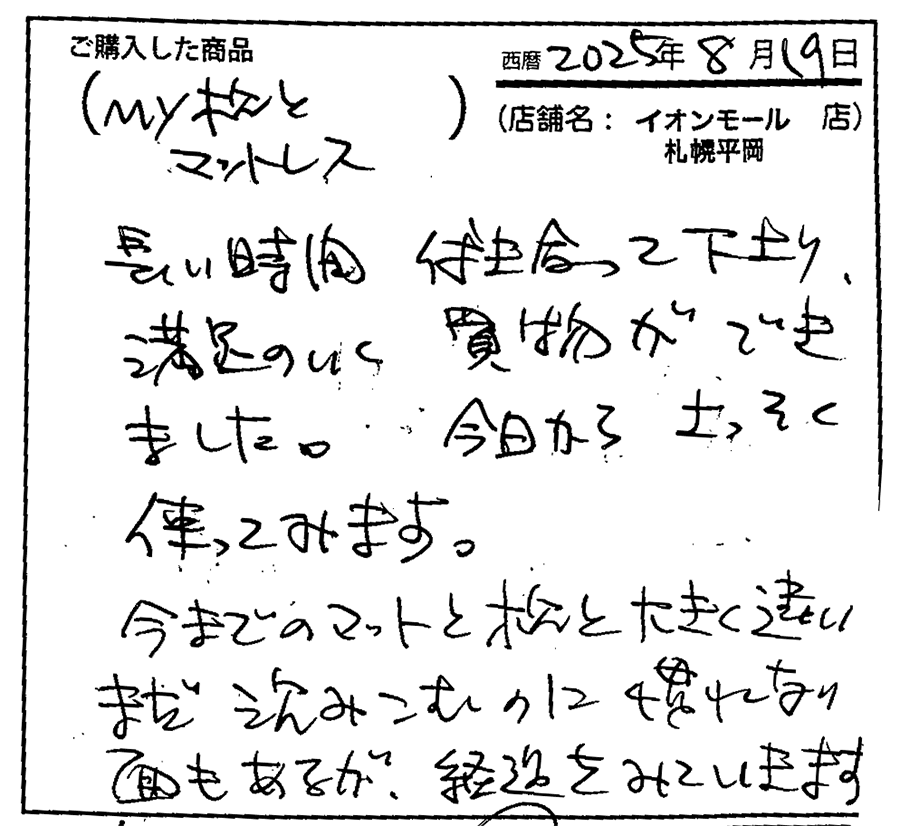 ご購入した商品
西暦 2025年 8月19日
(MY枕と
マットレス)
(店舗名: イオンモール 店)
札幌平岡
長い時間 付き合って下さり、
満足のいく 買物ができ
ました。 今日から さっそく
使ってみます。
今までのマットと枕と大きく違い
まだ 沈みこむのに 慣れない
面もあるが、経過をみていきます